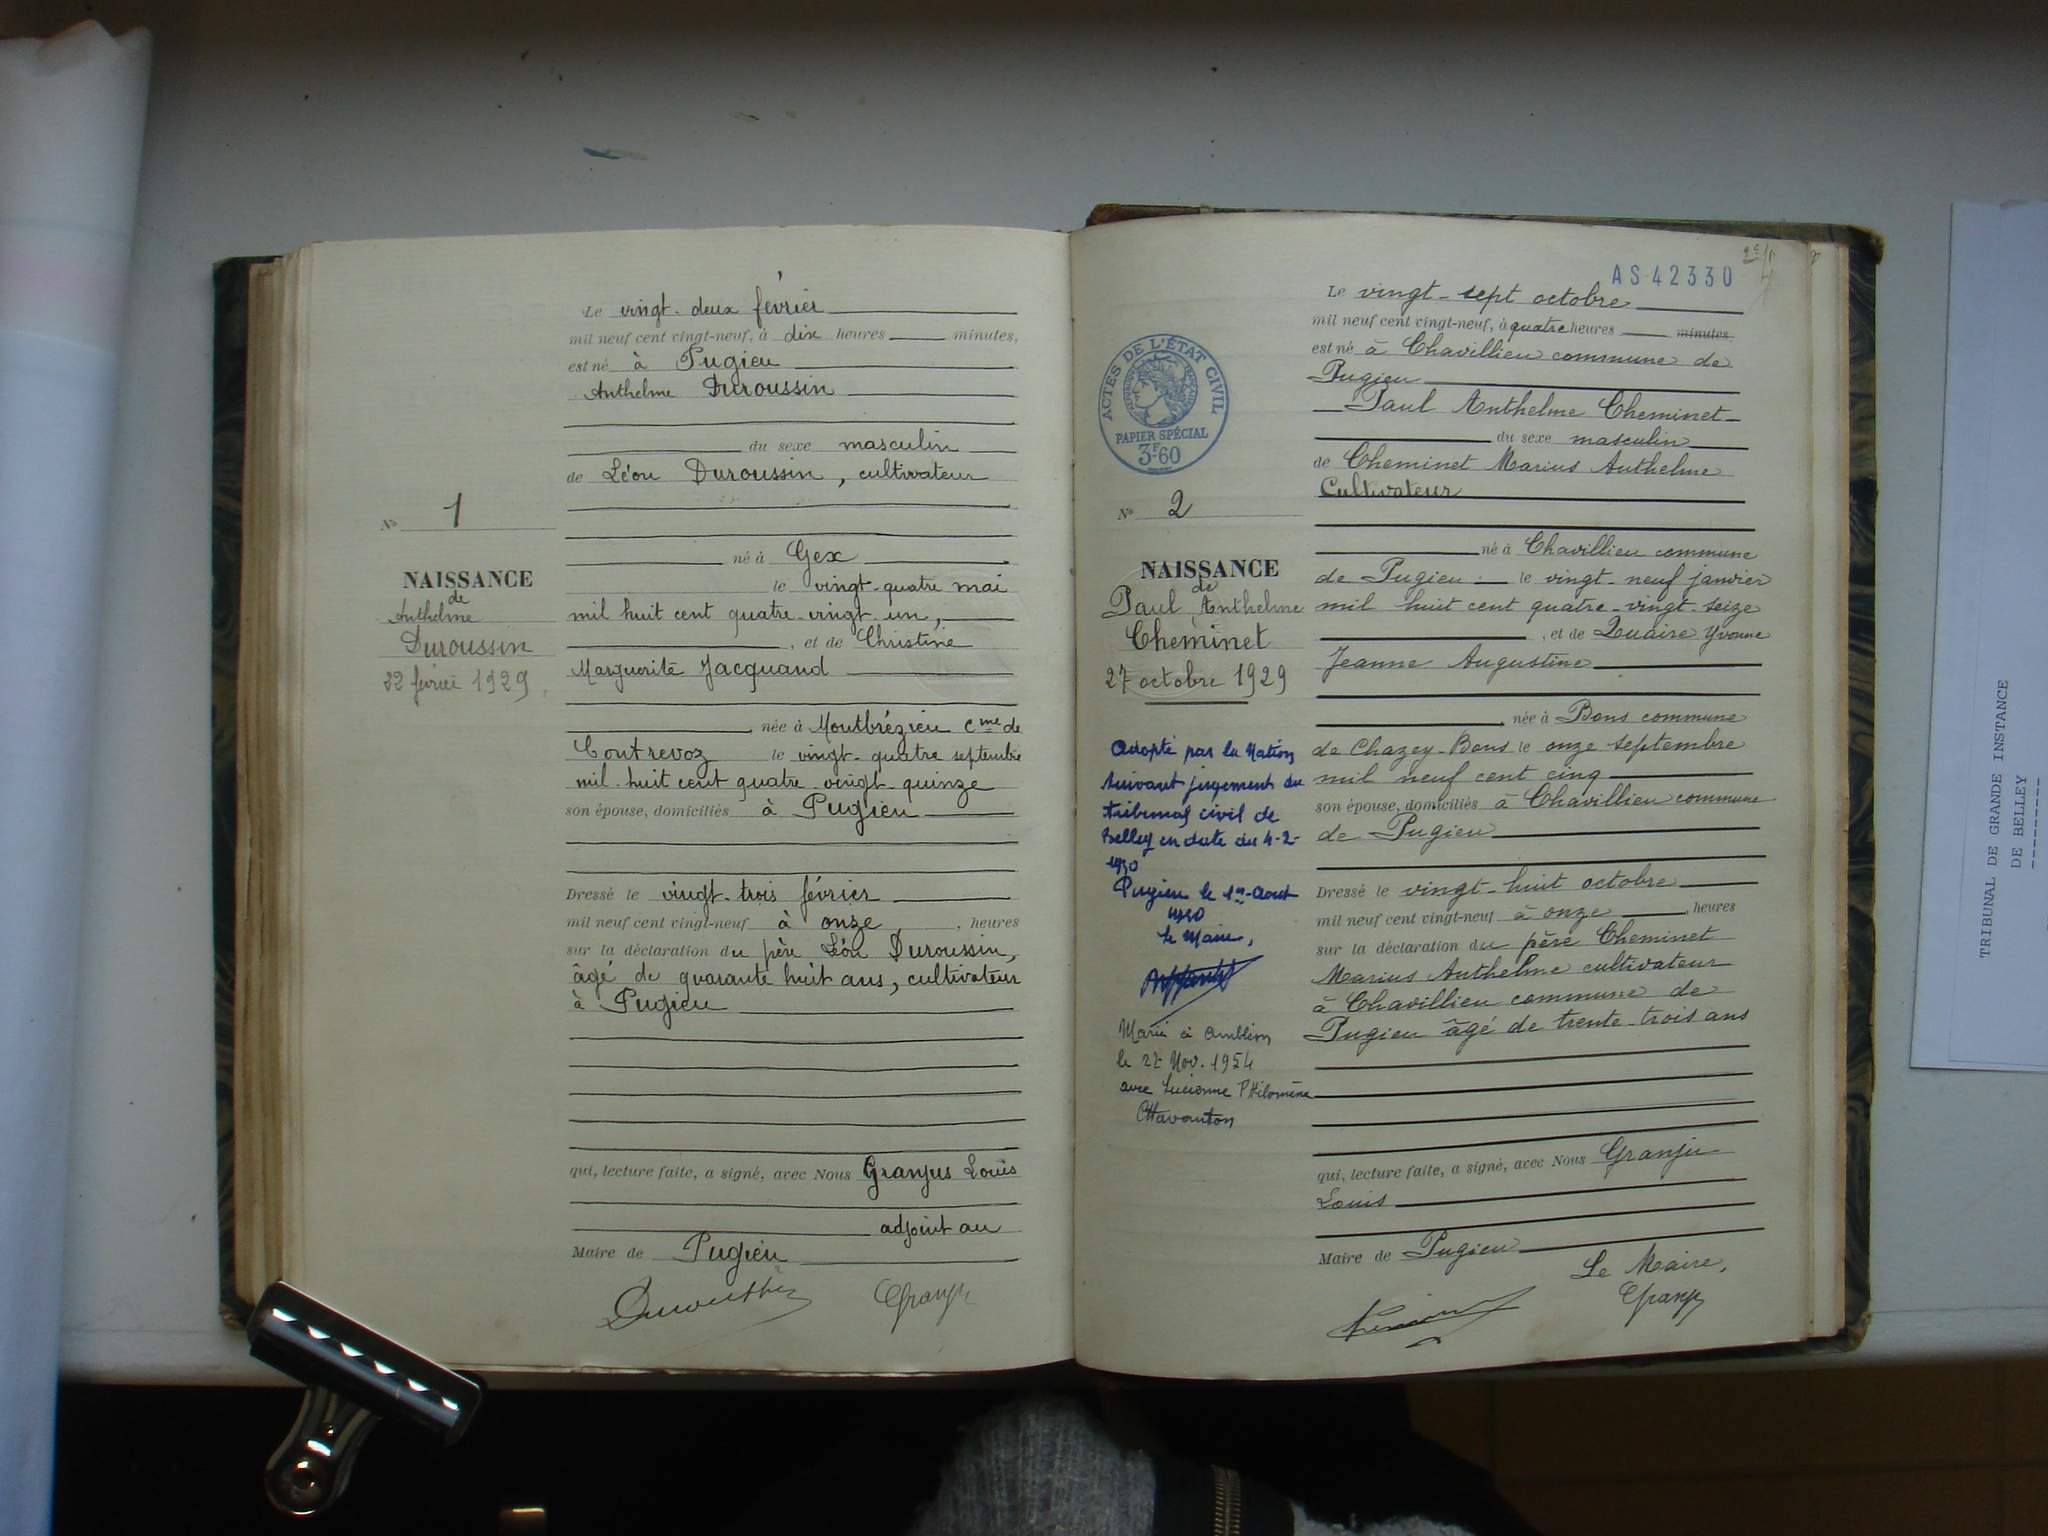 Le vingt-deux février
mil neuf cent vingt-neuf, à dix heures minutes,
est né à Pugieu
Anthelme Duroussin
du sexe masculin
de Léon Duroussin, cultivateur
né à Gex
le vingt-quatre mai
mil huit cent quatre-vingt-un,
, et de Christine
Marguerite Jacquand
née à Montbrézieu cme de
Contrevoz le vingt-quatre septembre
mil-huit cent quatre-vingt-quinze
son épouse, domiciliés à Pugieu
Dressé le vingt-trois février
mil neuf cent vingt-neuf à onze , heures
sur la déclaration du père Léon Duroussin,
âgé de quarante huit ans, cultivateur
à Pugieu
qui, lecture faite, a signé, avec Nous Granjus Louis
adjoint au
Maire de Pugieu
No 1
NAISSANCE
de
Anthelme
Duroussin
22 février 1929
AS 42330
Le vingt-sept octobre
mil neuf cent vingt-neuf, à quatre heures minutes
est né à Chavillieu commune de
Pugieu
Paul Anthelme Cheminet
du sexe masculin
de Cheminet Marius Anthelme
Cultivateur
né à Chavillieu commune
de Pugieu le vingt-neuf janvier
mil huit cent quatre-vingt-seize
, et de Quaire Yvonne
Jeanne Augustine
née à Bons commune
de Chazey-Bons le onze septembre
mil neuf cent cinq
son épouse, domiciliés à Chavillieu commune
de Pugieu
Dressé le vingt-huit octobre
mil neuf cent vingt-neuf à onze , heures
sur la déclaration du père Cheminet
Marius Anthelme cultivateur
à Chavillieu commune de
Pugieu âgé de trente-trois ans
qui, lecture faite, a signé, avec Nous Granju
Louis
Maire de Pugieu
Le Maire,
ACTES DE L'ÉTAT CIVIL
PAPIER SPÉCIAL
3F60
No 2
NAISSANCE
de
Paul Anthelme
Cheminet
27 octobre 1929
Adopté par la Nation
suivant jugement du
tribunal civil de
Belley en date du 4-2-
1930
Pugieu le 1er Aout
1930
Le Maire,
Marié à Ambléon
le 27 Nov. 1954
avec Lucienne PHilomène
CHavanton
TRIBUNAL DE GRANDE INSTANCE
DE BELLEY